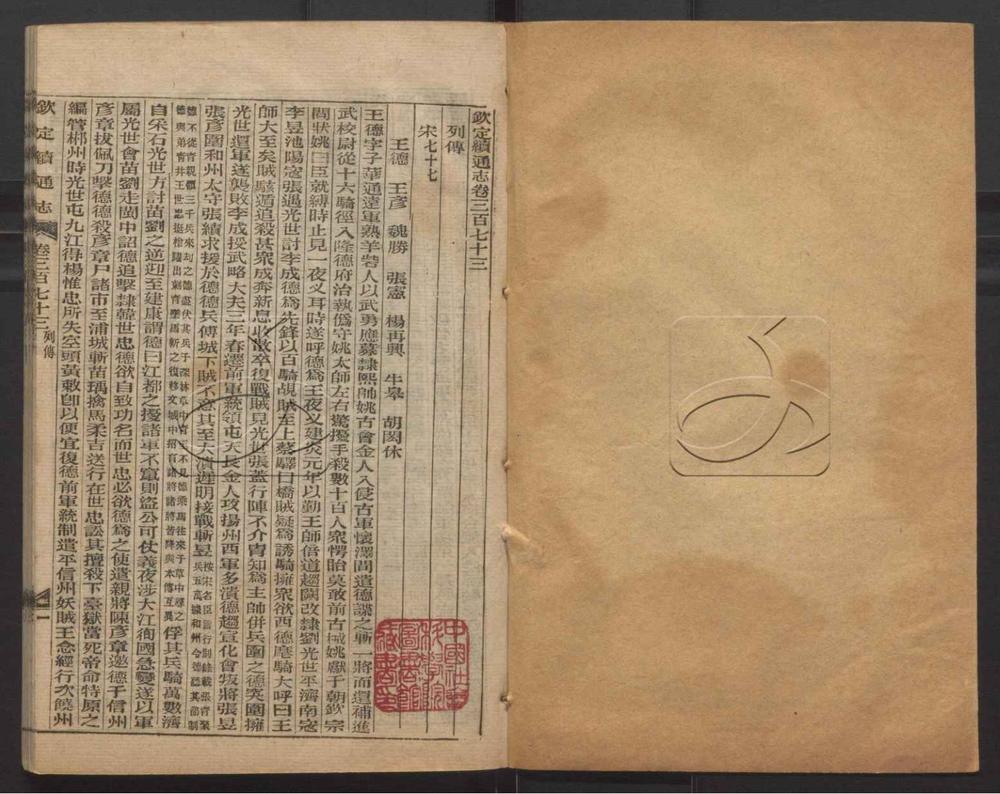 欽定續通志卷三百七十三
列傳
宋七十七
王德 王彥 魏勝 張憲 楊再興 牛皋 胡閎休
王德字子華通遠軍熟羊砦人以武勇應募隸熙帥姚古會金人入侵古軍懷澤間遣德諜之斬一將而還補進
武校尉從十六騎徑入隆德府治執僞守姚太師左右驚擾手殺數十百人衆愕眙莫敢前古械姚獻于朝欽宗
問狀姚曰臣就縛時止見一夜叉耳時遂呼德爲王夜叉建炎元年以勤王師倍道趨闕改隸劉光世平濟南寇
李昱池陽寇張遇光世討李成德爲先鋒以百騎覘賊至上蔡驛口橋賊疑爲誘騎擁衆欲西德麾騎大呼曰王
師大至矣賊駭遁追殺甚衆成奔新息收散卒復戰賊見光世張蓋行陣不介胄知爲主帥併兵圍之德突圍擁
光世還軍遂襲敗李成授武略大夫三年春遷前軍統領屯天長金人攻揚州西軍多潰德趨宣化會叛將張昱
張彥圍和州太守張績求援於德德兵傅城下賊不意其至大潰遲明接戰斬昱
俘其兵騎萬數濟
自采石光世方討苗劉之逆迎至建康謂德曰江都之擾諸軍不竄則盜公可仗義夜涉大江徇國急變遂以軍
屬光世會苗劉走閩中詔德追擊隸韓世忠德欲自致功名而世忠必欲德爲之使遣親將陳彥章邀德于信州
彥章拔佩刀擊德德殺彥章尸諸市至浦城斬苗瑀擒馬柔吉送行在世忠訟其擅殺下臺獄當死帝命特原之
編管郴州時光世屯九江得楊惟忠所失空頭黃敕卽以便宜復德前軍統制遣平信州妖賊王念經行次饒州
欽定續通志 卷三百七十三 列傳 一